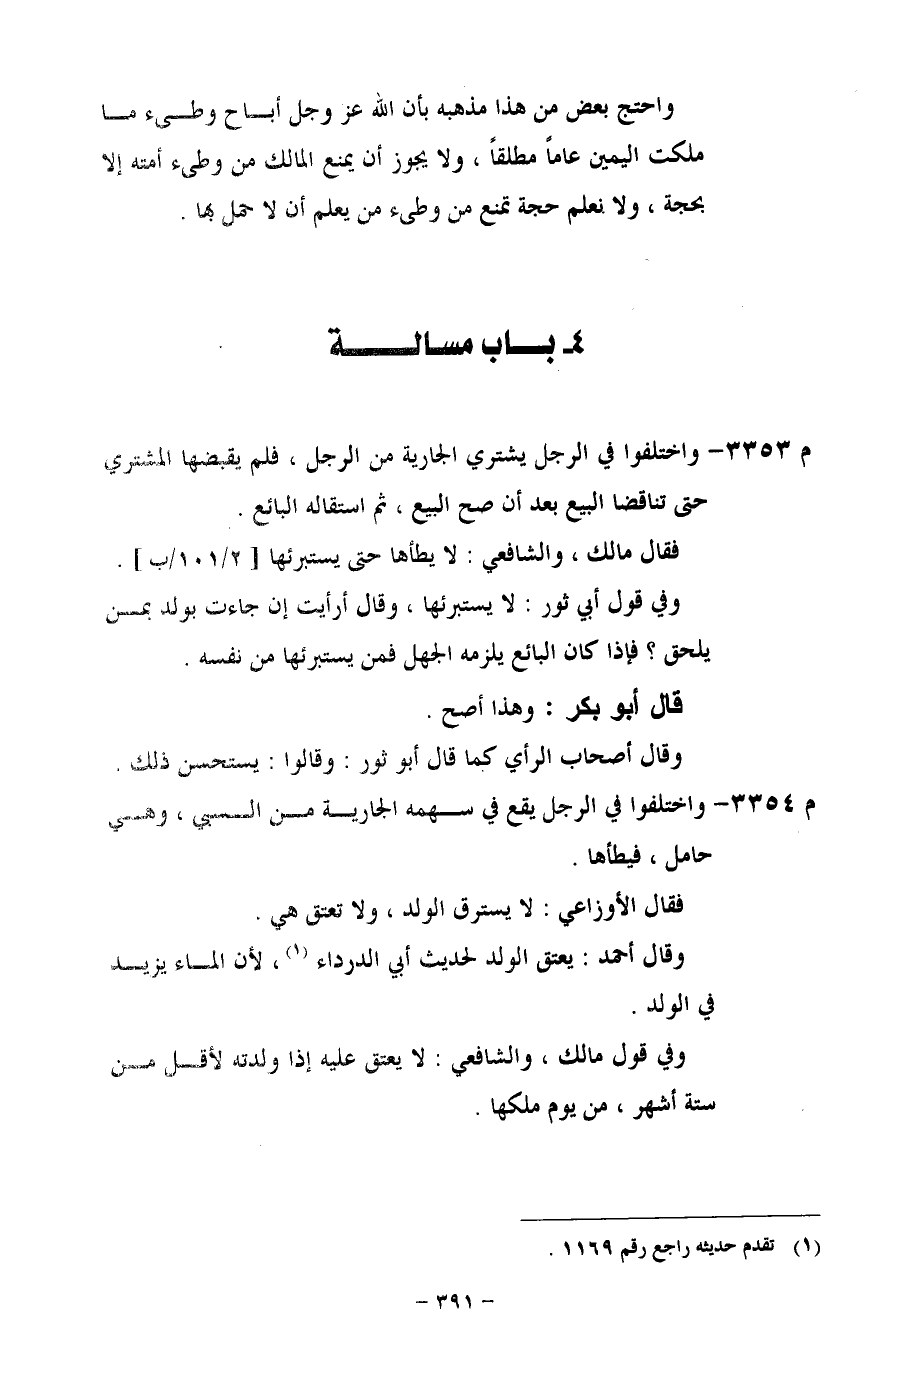 واحتج بعض من هذا مذهبه بأن الله عز وجل أبـــاح وطـــيء مـــا
ملكت اليمين عاماً مطلقاً ، ولا يجوز أن يمنع المالك من وطيء أمته إلا
بحجة ، ولا نعلم حجة تمنع من وطيء من يعلم أن لا حمل بها .
٤ـ بـــاب مسالـــــة
م ٣٣٥٣– واختلفوا في الرجل يشتري الجارية من الرجل ، فلم يقبضها المشتري
حتى تناقضا البيع بعد أن صح البيع ، ثم استقاله البائع .
فقال مالك ، والشافعي : لا يطأها حتى يستبرئها [ ١٠١/٢/ب ] .
وفي قول أبي ثور : لا يستبرئها ، وقال أرأيت إن جاءت بولد بمـــن
يلحق ؟ فإذا كان البائع يلزمه الجهل فمن يستبرئها من نفسه .
قال أبو بكر : وهذا أصح .
وقال أصحاب الرأي كما قال أبو ثور : وقالوا : يستحسن ذلك .
م ٣٣٥٤– واختلفوا في الرجل يقع في ســـهمه الجاريـــة مـــن الـــسبي ، وهـــي
حامل ، فيطأها .
فقال الأوزاعي : لا يسترق الولد ، ولا تعتق هي .
وقال أحمد : يعتق الولد لحديث أبي الدرداء (١) ، لأن المـــاء يزيـــد
في الولد .
وفي قول مالك ، والشافعي : لا يعتق عليه إذا ولدته لأقـــل مـــن
ستة أشهر ، من يوم ملكها .
(١) تقدم حديثه راجع رقم ١١٦٩ .
– ٣٩١ –